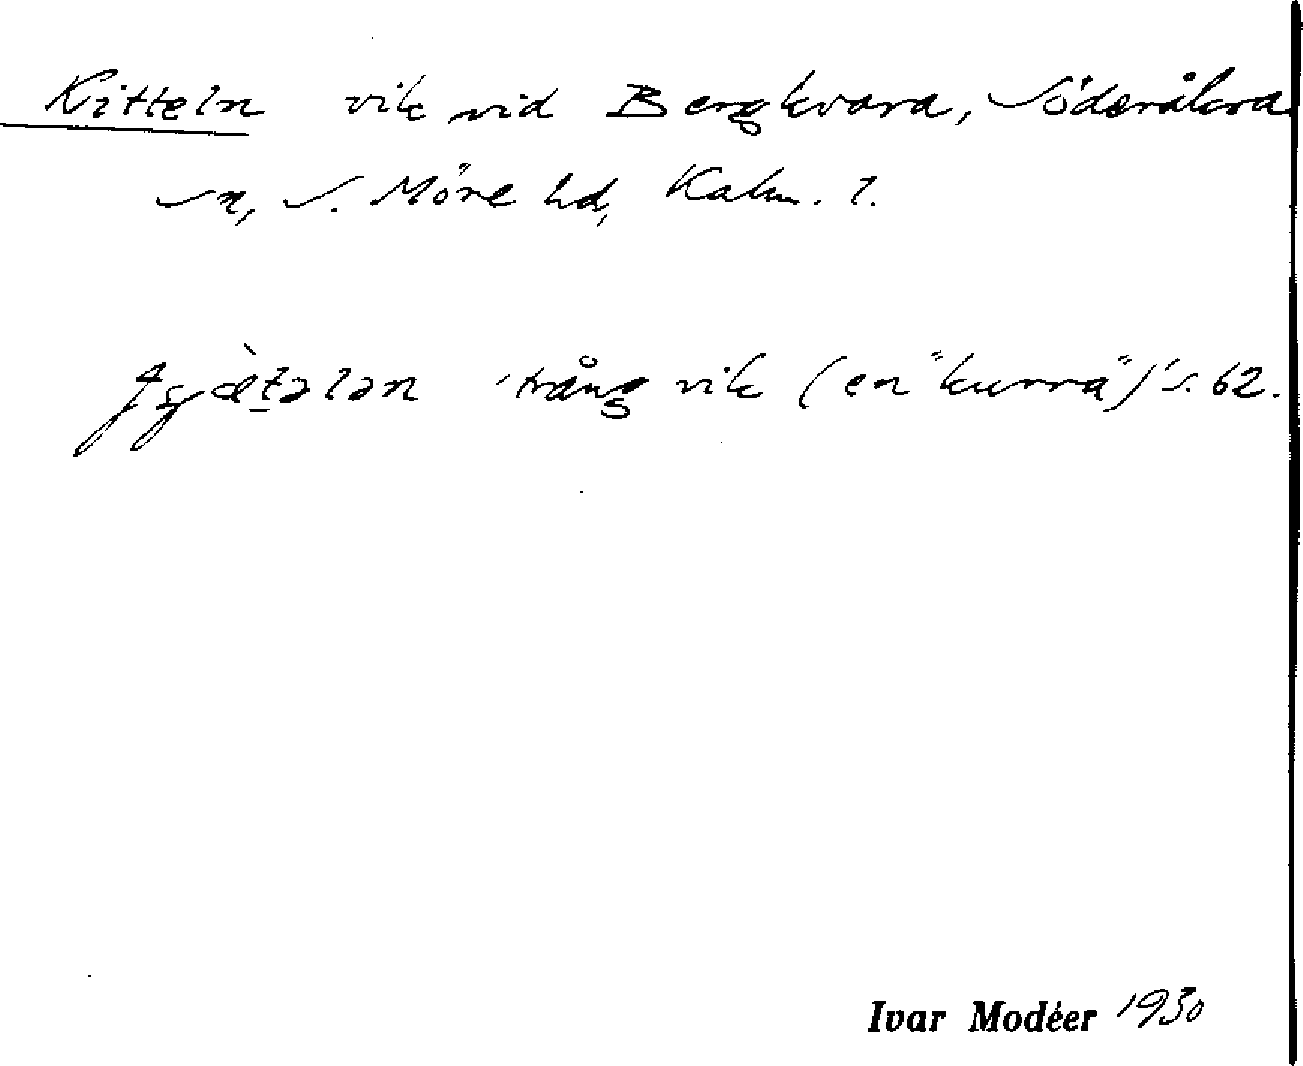 Kitteln vik vid Bergkvara, Söderåkra
sn, S. Möre hd, Kalm. l.
'trång vik (en "kurra")' s. 62.
Ivar Modéer 1930